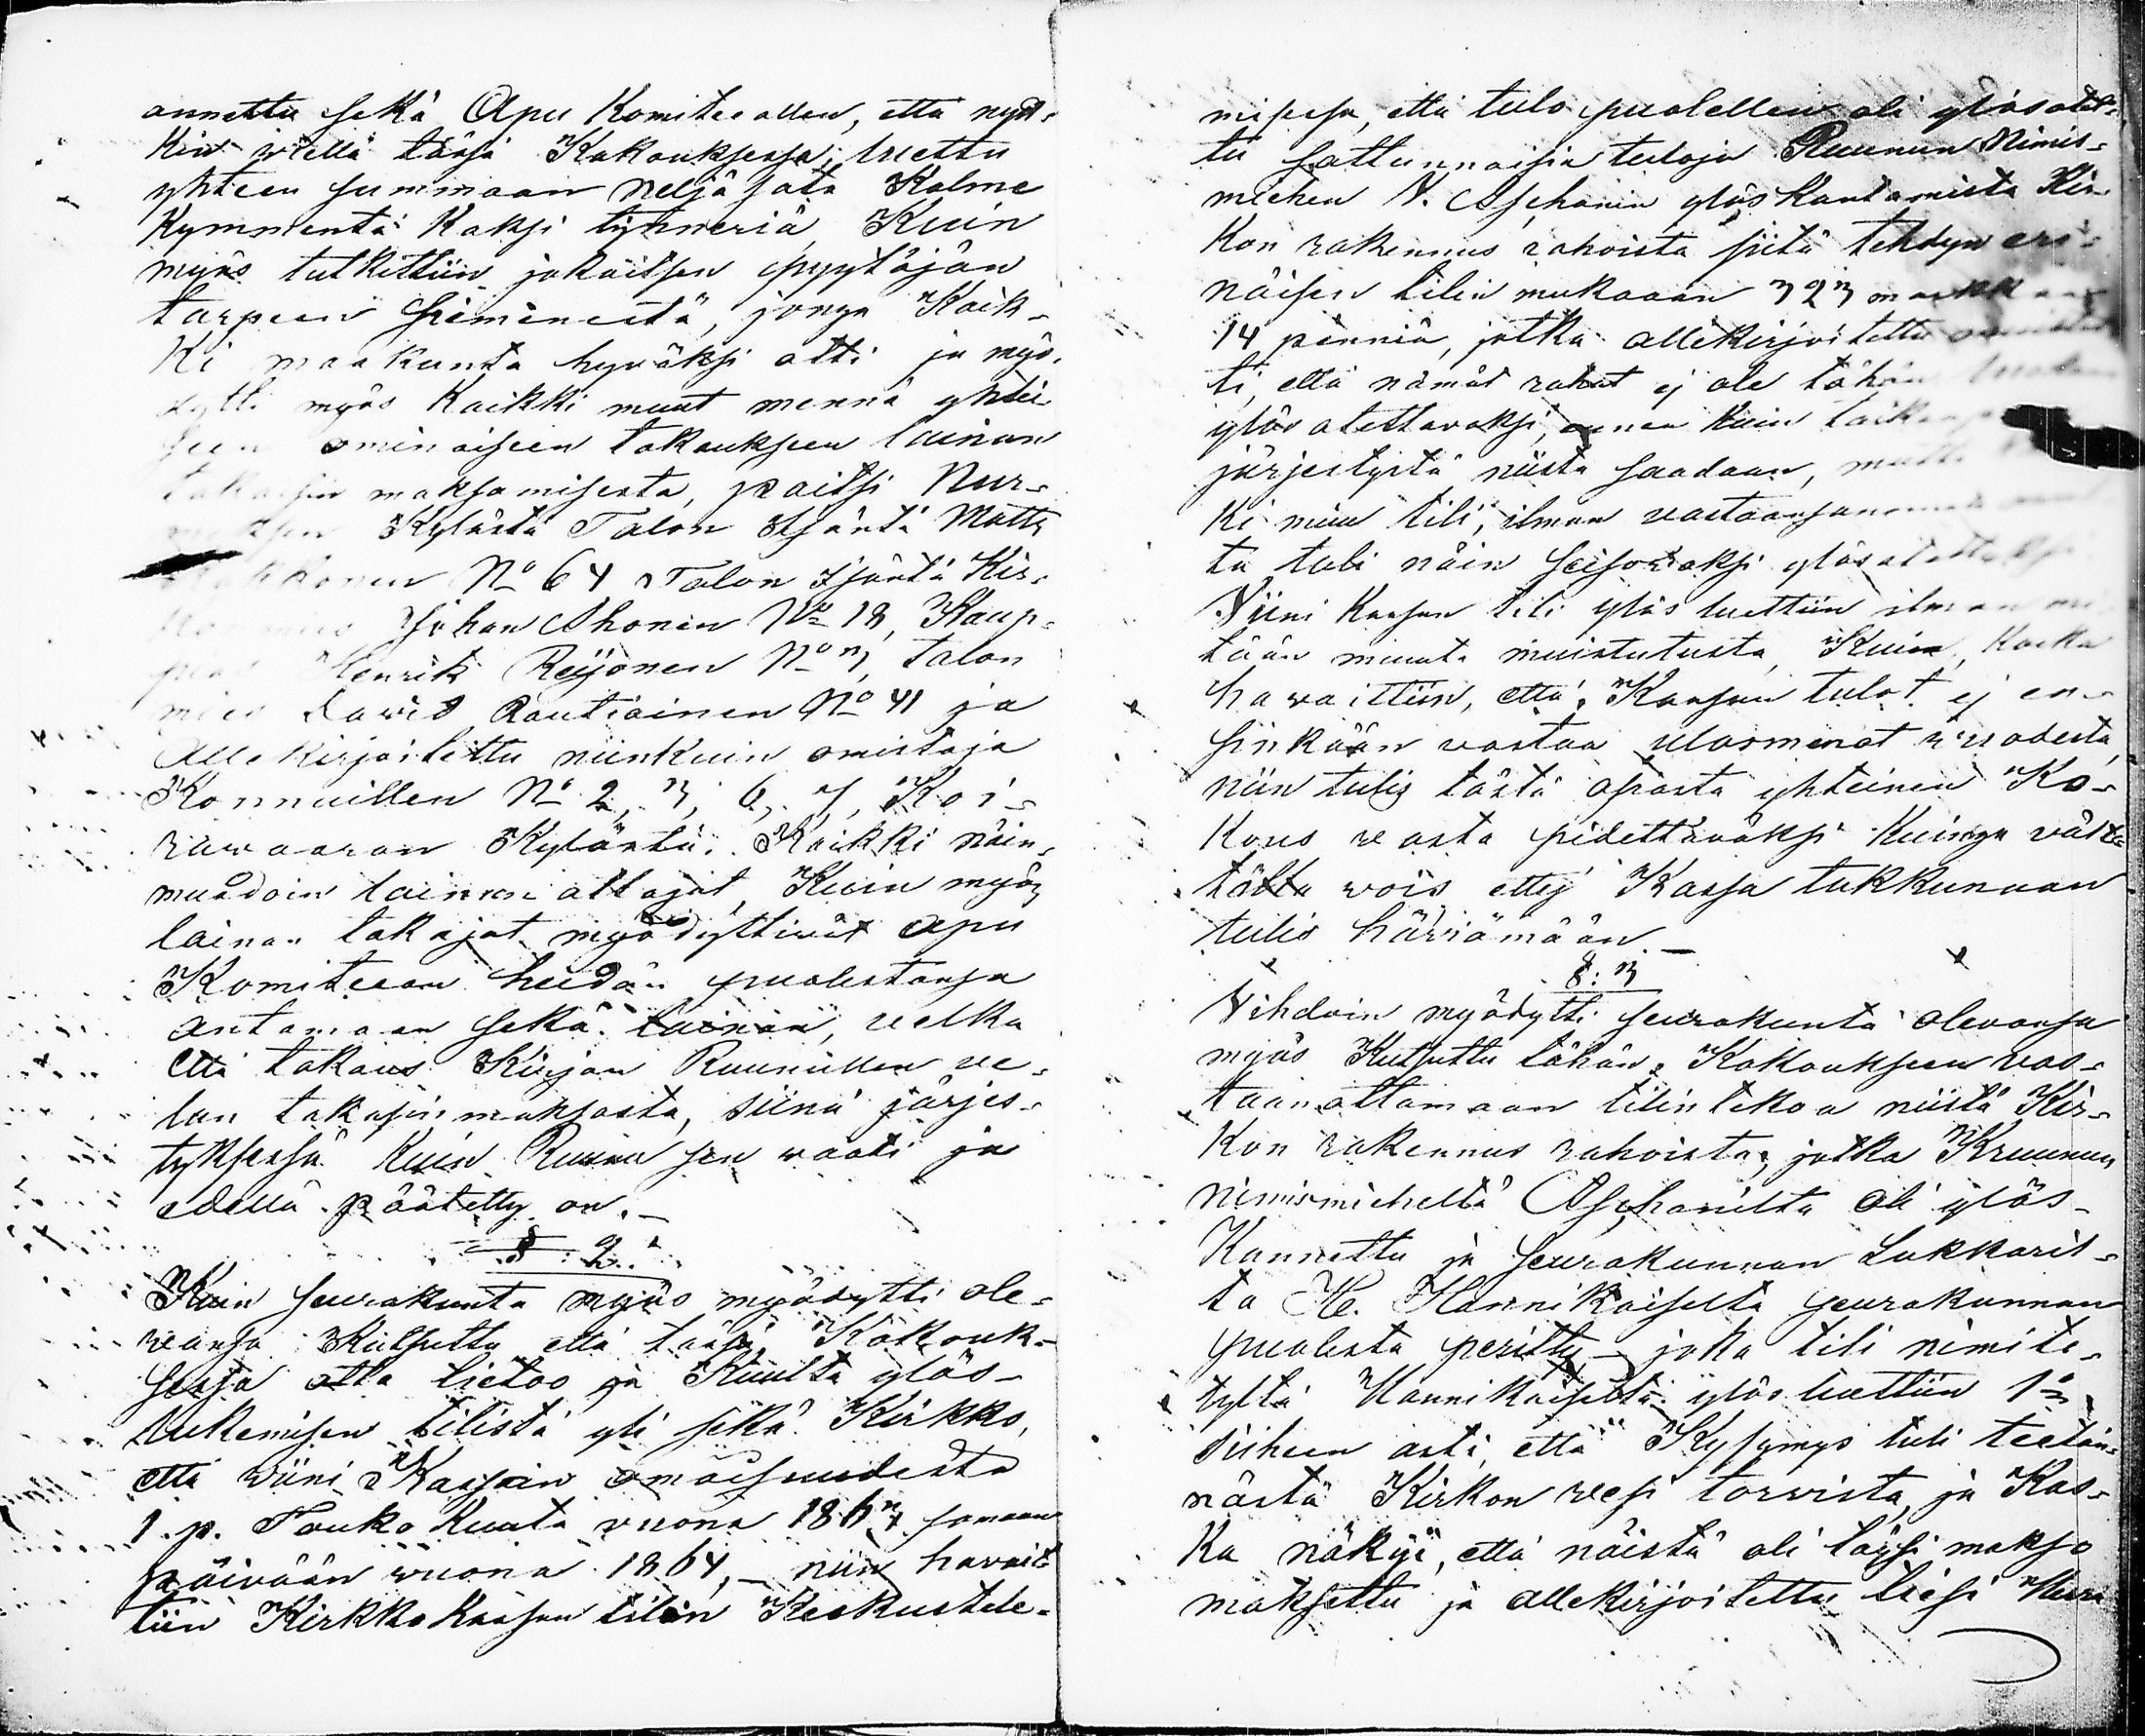 annettu sekä Apu Komiteallen, että nyt-
kin wiellä tässä Kokouksessa, luettu
yhteen summaan neljä sata Kolme
Kymmentä Kaksi tynneriä, Kuin
myös tutkittiin jokaitsen pyytäjän
tarpeen Siemenestä, jonga Kaik-
ki maakunta hyväksi otti ja myö-
dytti myös Kaikki muut mennä yhtei-
seen ominaiseen takaukseen lainan
takaisin maksamisesta, paitsi Nur-
Kylästä Talon Isäntä Matts
No 64 Talon Isäntä Kir-
Johan Ahonen No 18, Kaup-
Henrik Reijonen No 3, talon
mies David Rautiainen No 41 ja
Allekirjoitettu niinkuin omistaja
Konnuillen No 2, 3, 6, 7, Koi-
rawaaran Kylästä. Kaikki näin-
muodoin lainan ottajat, Kuin myös
lainan takajat myödyttiwät Apu
Komitean heidän puolestansa
antamaan sekä lainan, velka
että takaus Kirjan Ruunullen ve-
lan takasin maksosta, siinä järjes-
tyksessä Kuin Ruunu sen waati ja
edellä päätetty on. —
§: 2.
Kuin seurakunta myös myödytti ole-
vansa Kutsuttu että tässä Kokouk-
sessa otta tietoo ja Kuulta ylös-
lukemisen tilistä yli sekä Kirkko,
että wiini Kassain omaisuudesta
1. p. Touko Kuuta vuona 1863 samaan
päivään wuona 1864, — niin havait-
tiin Kirkko Kassan tilin Keskustele-
misessa, että tulo puolellen oli ylösotet-
tu sattunnaisia tuloja Ruunun Nimis-
miehen V. Aschanin ylöskantamista Kir-
kon rakennus rahoista siitä tehdyn eri-
näisen tilin mukaaan 323 markkaa
14 penniä, jotka allekirjoitettu muistut
ti, että nämät rahat ej ole tähän
ylös otettavaksi, ennen Kuin
järjestystä niistä saadaan, mutta
ki muu tili, ilman vastaansanomata
ta tuli näin seisovaksi ylösotettaksi
Viini Kassan tili ylös luettiin ilman mi
tään muuta muistutusta, Kuin, Koska
hawaittiin, että Kassan tulot ej en-
sinkään vastaa ulosmenot vuodesta,
niin tulis tästä asiasta yhteinen Ko-
kous vasta pidettäväksi Kuinga vält-
tättä wois ettej Kassa tukkunaan
tulis häwiämään. —
§: 3
Vihdoin myödytti seurakunta olevansa
myös Kutsuttu tähän Kokoukseen vas-
taanottamaan tilin tekoa niistä Kir-
kon rakennus rahoista, jotka Kruunun
nimismieheltä Aschanilta oli ylös-
Kannettu ja seurakunnan Lukkaril-
ta H. Hannikaiselta seurakunnan
puolesta peritty — joka tili nimite-
tyltä Hannikaiselta ylös luettiin
siiheen asti, että Kysymys tuli teetän-
nästä Kirkon vesi torvista, ja Kos-
ka näkyi, että näistä oli täysi makso
maksettu ja allekirjoitettu tiesi